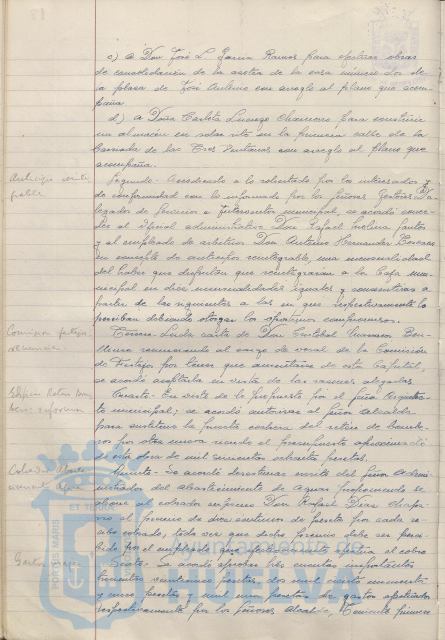 c) a Don José L. García Ramos para efectuar obras
de consolidación en la azotea de la casa número dos de
la plaza de José Antonio con arreglo al plano que acom-
paña.
d) a Doña Carlota Luengo Chamorro para construir
un almacén en solar sito en la primera calle de la
Barriada de las Tres Ventanas con arreglo al plano que
acompaña.
Anticipo reinte-
grable
Segundo.- Accediendo a lo solicitado por los interesados y
de conformidad con lo informado por los Señores Gestores De-
legados de Servicios e Interventor municipal, se acordó conce-
der al Oficial administrativo Don Rafael Molina
y al empleado de arbitrios Don Antonio Hernandez
en concepto de anticipo reintegrable, una mensualidad
del haber que disfrutan que reintegrarán a la Caja mu-
nicipal en diez mensualidades iguales y consecutivas a
partir de las siguientes a las en que respectivamente lo
perciban debiendo otorgar los oportunos compromisos.
Comision festejos
renuncia
Tercero.- Leída carta de Don Cristobal
renunciando al cargo de vocal de la Comisión
de Festejos por tener que ausentarse de esta Capital,
se acordó aceptarla en vista de las razones alegadas.
Cuarto.- En vista de lo propuesto por el Señor Arquitec-
to municipal; se acordó autorizar al Señor Alcalde
para sustituir la puerta del retén de bombe-
ros por otra nueva siendo el presupuesto aproximado
de esta obra de mil seiscientas ochenta pesetas.
Quinto.- Se acordó desestimar escrito del Señor Admi-
nistrador del Abastecimiento de Aguas proponiendo se
abone al cobrador enfermo Don Rafael Diaz
el premio de diez centimos de peseta por cada re-
cibo cobrado, toda vez que dicho premio debe ser perci-
bido por el empleado que efectivamente efectúa el cobro
Sexto.- Se acordó aprobar tres cuentas importantes
trescientas veintinueve pesetas, dos mil ciento cincuenta
y nueve pesetas y mil una pesetas de gastos efectuados
respectivamente por los Señores Alcalde, Teniente primero
Ayuntamiento de
HUELVA
PORTUS MARIS
ET TERRAE